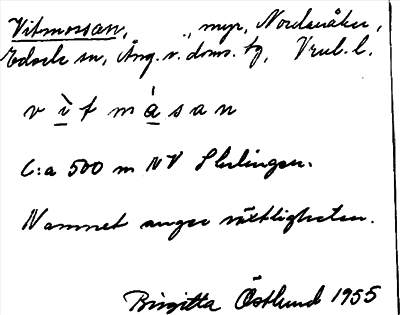 Vitmossan, ,, myr, Nordsvåker,
Edsele sn, Ång. v. doms. tg,
v ì t m å̀ s a n
C:a 500 m NV
Namnet anger växtligheten.
Birgitta Östlund 1955